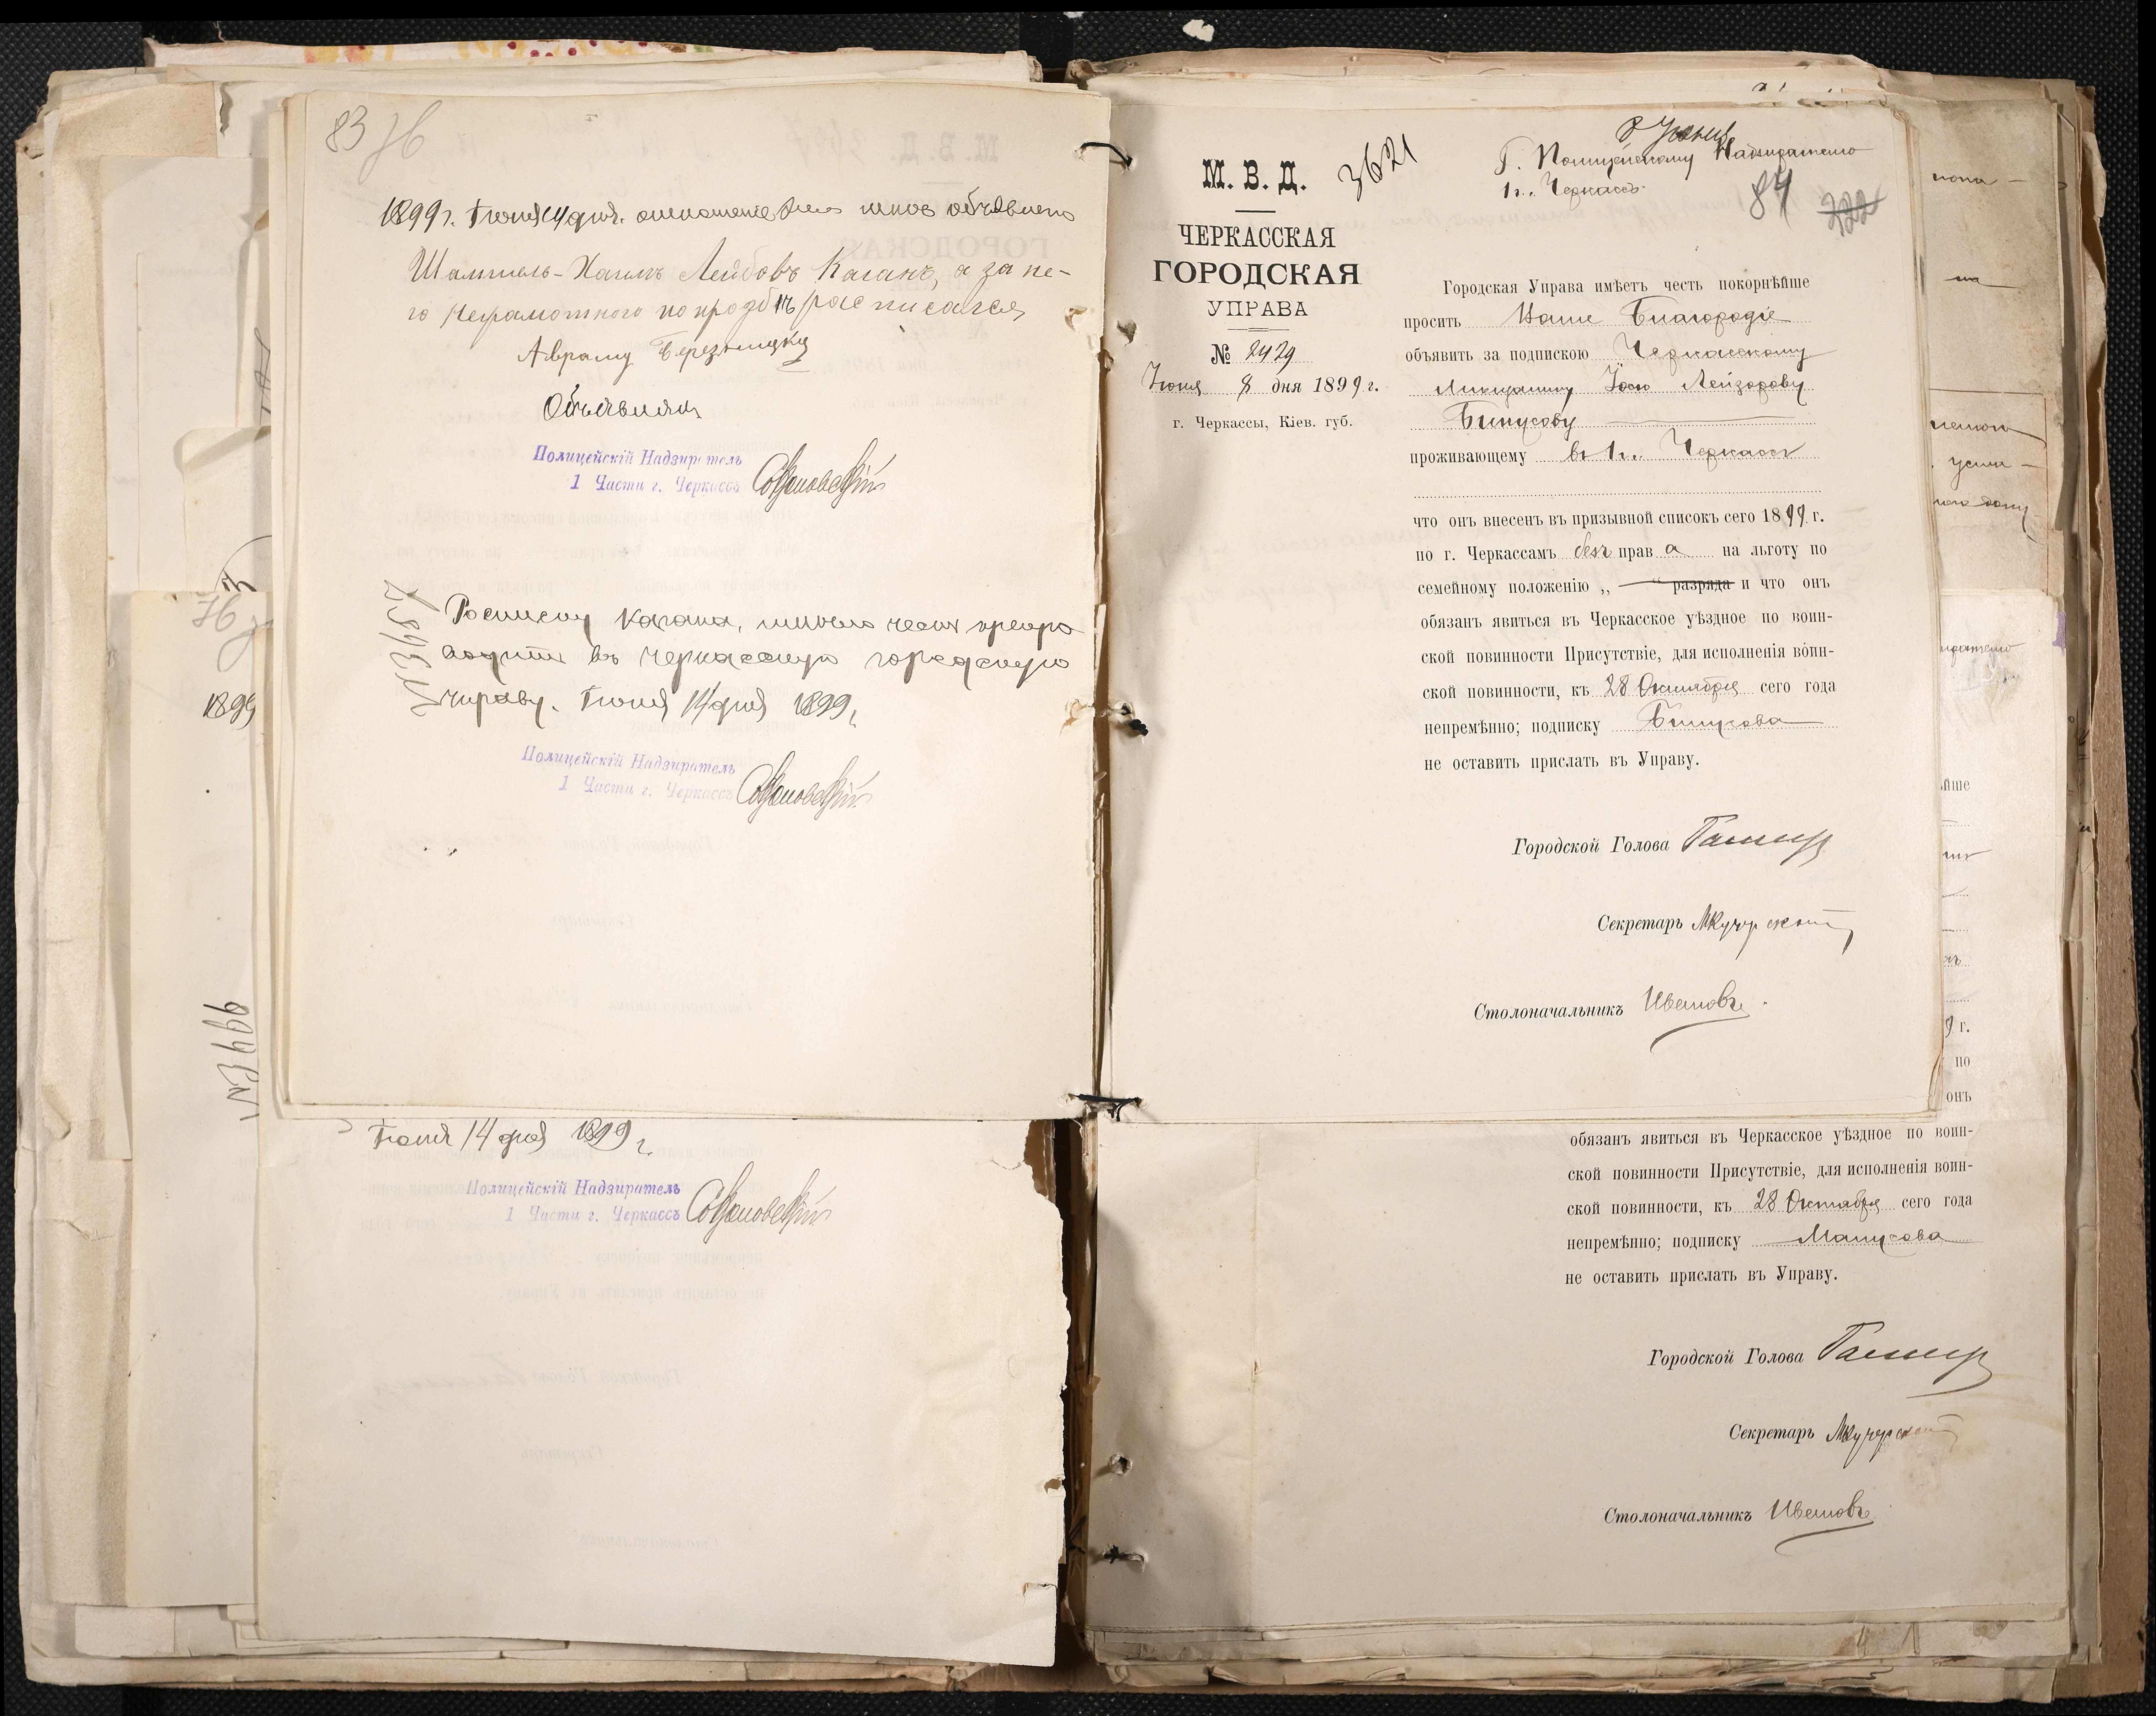 83 об
1899 г. Июня 14 дня. отношение мною объявлено
Шампиль-Хаимъ Лейбовъ Каганъ, а за не-
го неграмотного по прозбѣ росписался
Аврамъ Березницкий
Объявилъ
Полицейскій Надзиратель
1 Части г. Черкассъ
Росписку Кагана, имѣю честь препро
водить въ Черкасскую городскую
Управу. Июня 14 дня 1899 г.
Полицейскій Надзиратель
1 Части г. Черкассъ
Июня 14 дня 1899 г.
Полицейскій Надзиратель
1 Части г. Черкассъ
1899
М. В. Д.
3621
ЧЕРКАССКАЯ
ГОРОДСКАЯ
УПРАВА
№ 2429
Июня 8 дня 1899 г.
г. Черкассы, Кіев. губ.
Г. Полицейскому Надзирателю
1 ч. г. Черкассъ
84 222
Городская Управа имѣетъ честь покорнѣйше
просить Ваше Благородіе
объявить за подпискою Черкасскому
мѣщанину Іосю Лейзорову
Бинусову
проживающему въ 1 ч. г. Черкассъ
что онъ внесенъ въ призывной списокъ сего 1899 г.
по г. Черкассамъ безъ права на льготу по
семейному положенію „ “ разряда и что онъ
обязанъ явиться въ Черкасское уѣздное по воин-
ской повинности Присутствіе, для исполненія воин-
ской повинности, къ 28 Октября сего года
непремѣнно; подписку Бинусова
не оставить прислать въ Управу.
Городской Голова
Секретарь
Столоначальникъ Ивановъ
обязанъ явиться въ Черкасское уѣздное по воин-
ской повинности Присутствіе, для исполненія воин-
ской повинности, къ 28 Октября сего года
непремѣнно; подписку Манусова
не оставить прислать въ Управу.
Городской Голова
Секретарь
Столоначальникъ Ивановъ
9 г.
по
онъ